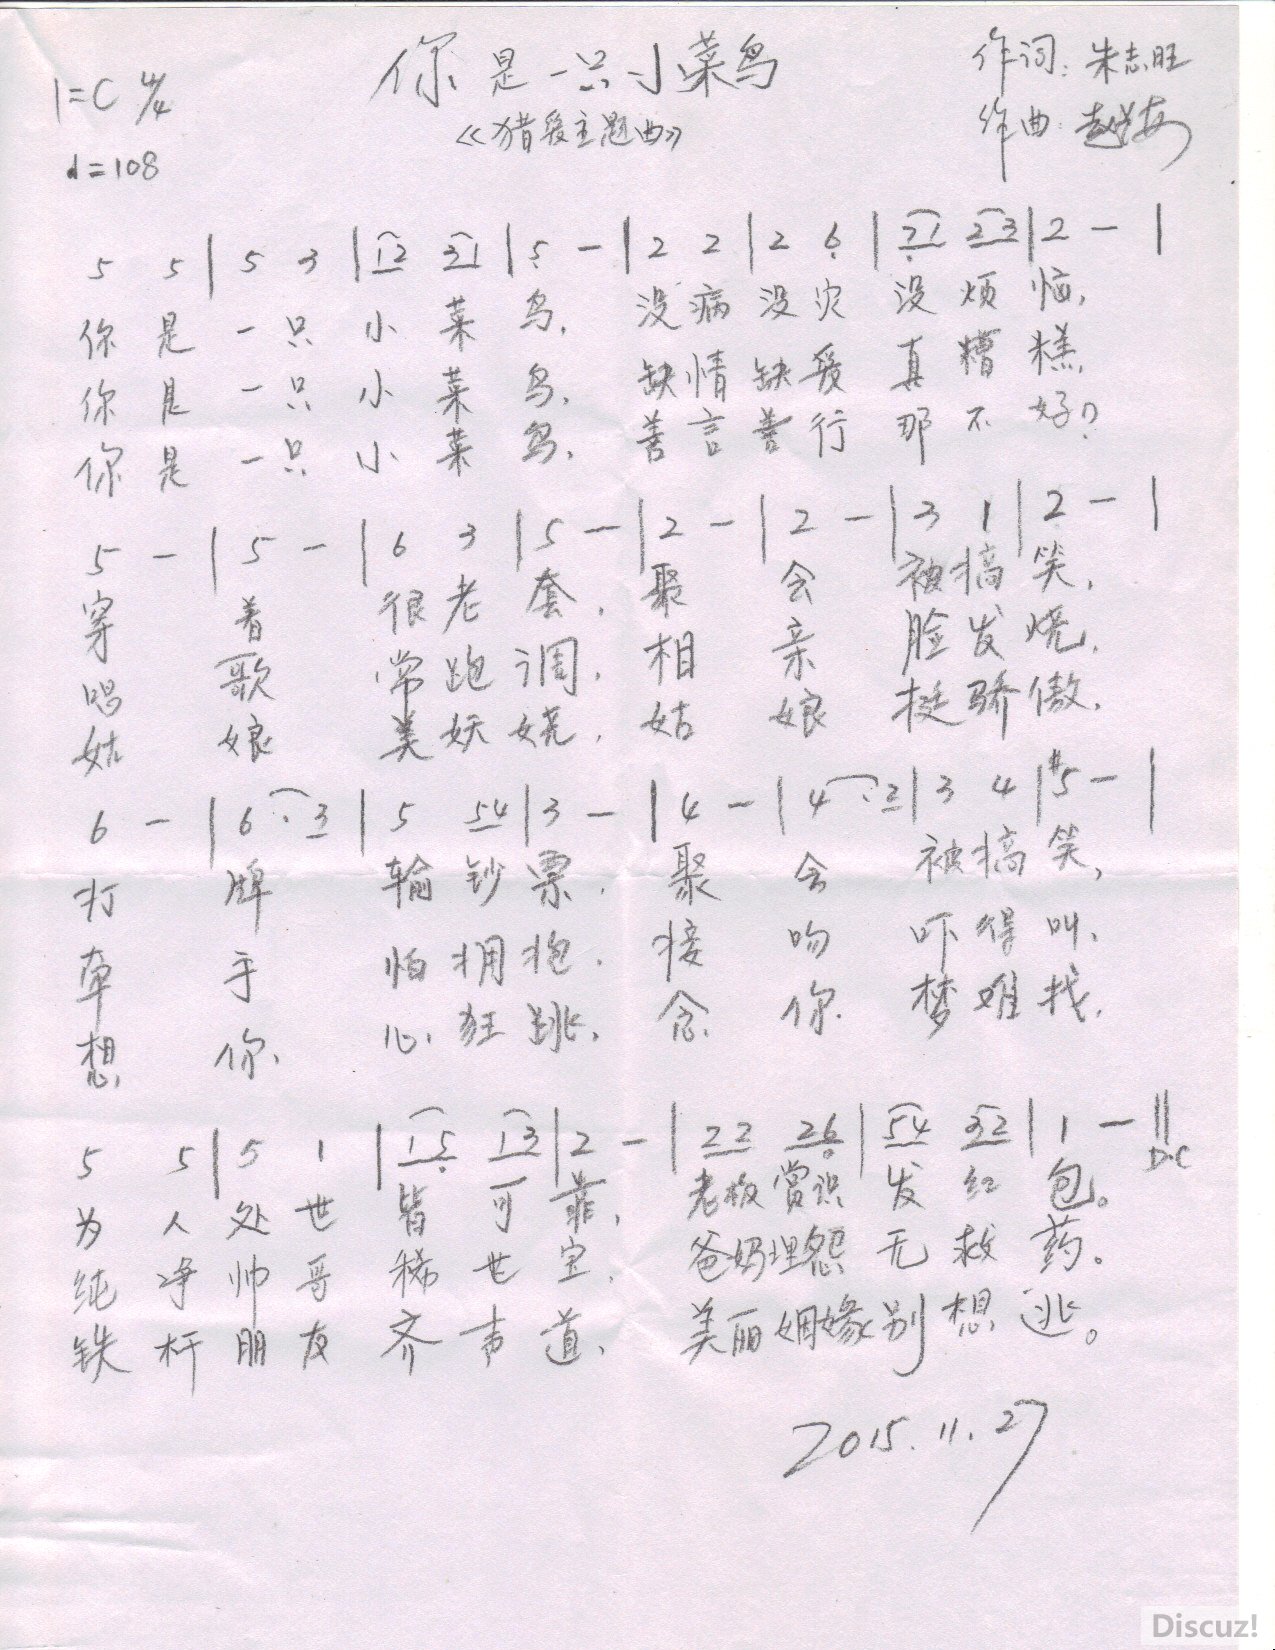 你是一只小菜鸟
作词：朱志旺
1=C 4/4
《猎爱主题曲》
作曲：
♩=108
5 5 | 5 3 | 12 31 | 5 - | 2 2 | 2 6 | 21 23 | 2 - |
你是一只小菜鸟，没病没灾没烦恼，
你是一只小菜鸟，缺情缺爱真糟糕，
你是一只小菜鸟，善言善行那不好？
5 - | 5 - | 6 3 | 5 - | 2 - | 2 - | 3 1 | 2 - |
穿着很老套，聚会被搞笑，
唱歌常跑调，相亲脸发烧，
姑娘美妖娆，姑娘挺骄傲，
6 - | 6 · 3 | 5 54 | 3 - | 4 - | 4 · 2 | 3 4 | #5 - |
打牌输钞票，聚会被搞笑，
牵手怕拥抱，接吻吓得叫，
想你心狂跳，念你梦难找，
5 5 | 5 1 | 15 13 | 2 - | 22 26 | 54 32 | 1 - ‖
D.C
为人处世皆可靠，老板赏识发红包。
纯净帅哥稀世宝，爸妈埋怨无救药。
铁杆朋友齐声道，美丽姻缘别想逃。
2015.11.27
Discuz!